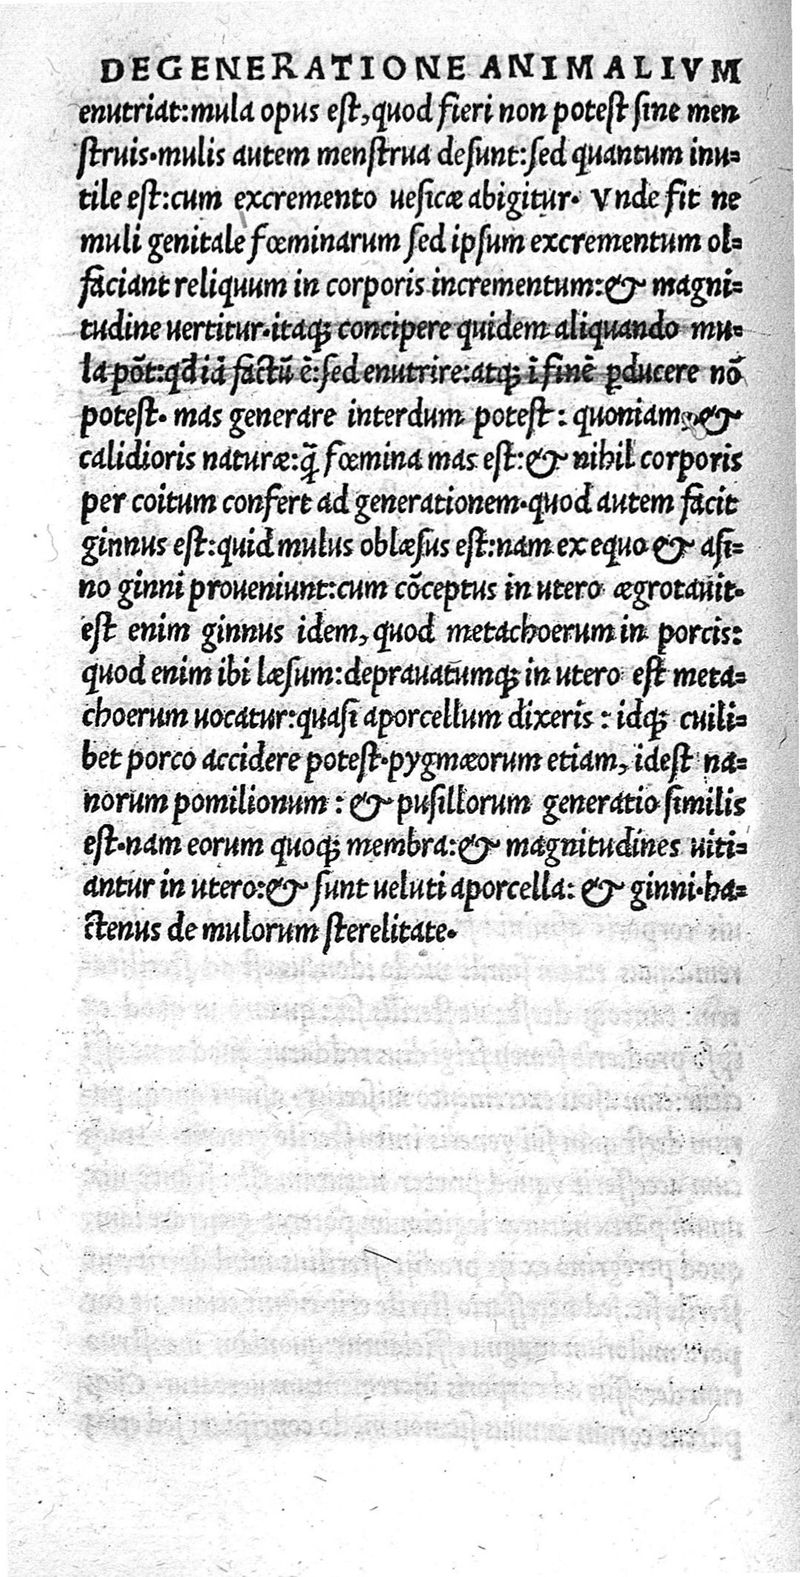 DE GENERATIONE ANIMALIVM
enutriat:mula opus est,quod fieri non potest sine men
struis.mulis autem menstrua desunt:sed quantum inu=
tile est:cum excremento uesicæ abigitur. Vnde fit ne
muli genitale fœminarum sed ipsum excrementum ol=
faciant reliquum in corporis incrementum:& magni=
tudine uertitur.itaq; concipere quidem aliquando mu=
la põt:qd iã factũ ẽ:sed enutrire:atq; ĩ finẽ ꝑducere nõ
potest. mas generare interdum potest: quoniam &
calidioris naturæ:q̃ fœmina mas est:& nihil corporis
per coitum confert ad generationem.quod autem facit
ginnus est:quid mulus oblæsus est:nam ex equo & asi=
no ginni proueniunt:cum cõceptus in utero ægrotauit.
est enim ginnus idem,quod metachoerum in porcis:
quod enim ibi læsum:deprauatumq; in utero est meta=
choerum uocatur:quasi aporcellum dixeris: idq; cuili=
bet porco accidere potest.pygmæorum etiam, idest na=
norum pomilionum:& pusillorum generatio similis
est.nam eorum quoq; membra:& magnitudines uiti=
antur in utero:& sunt ueluti aporcella: & ginni.ha=
ctenus de mulorum sterelitate.